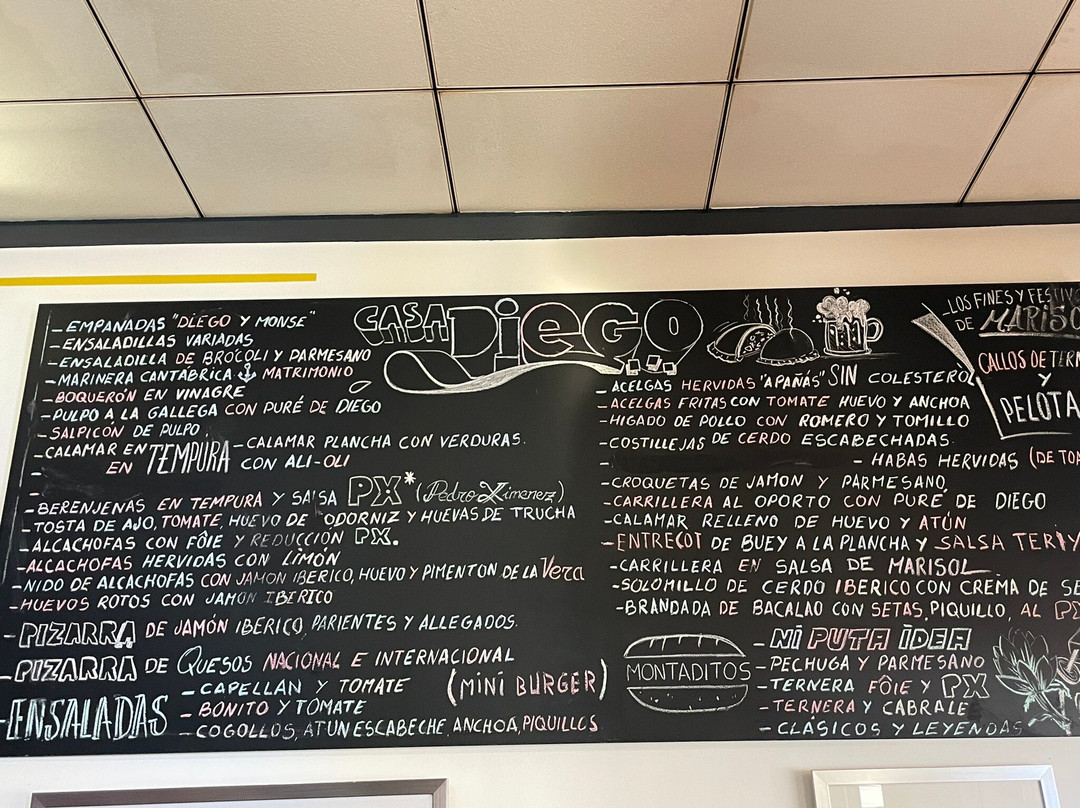 CASA DIEGO
- EMPANADAS "DIEGO Y MONSE"
- ENSALADILLAS VARIADAS
- ENSALADILLA DE BRÓCOLI Y PARMESANO
- MARINERA CANTÁBRICA MATRIMONIO
- BOQUERÓN EN VINAGRE
- PULPO A LA GALLEGA CON PURÉ DE DIEGO
- SALPICÓN DE PULPO
- CALAMAR EN TEMPURA - CALAMAR PLANCHA CON VERDURAS.
EN CON ALI-OLI
- BERENJENAS EN TEMPURA Y SALSA PX* (Pedro Ximenez)
- TOSTA DE AJO, TOMATE, HUEVO DE CODORNIZ Y HUEVAS DE TRUCHA
- ALCACHOFAS CON FÔIE Y REDUCCIÓN PX.
- ALCACHOFAS HERVIDAS CON LIMÓN
- NIDO DE ALCACHOFAS CON JAMON IBERICO, HUEVO Y PIMENTON DE LA Vera
- HUEVOS ROTOS CON JAMON IBERICO
- PIZARRA DE JAMÓN IBERICO, PARIENTES Y ALLEGADOS.
- PIZARRA DE QUESOS NACIONAL E INTERNACIONAL
- ENSALADAS
- CAPELLAN Y TOMATE
- BONITO Y TOMATE
- COGOLLOS, ATUN ESCABECHE, ANCHOA, PIQUILLOS
- ACELGAS HERVIDAS "APAÑÁS" SIN COLESTEROL
- ACELGAS FRITAS CON TOMATE HUEVO Y ANCHOA
- HIGADO DE POLLO CON ROMERO Y TOMILLO
- COSTILLEJAS DE CERDO ESCABECHADAS.
- HABAS HERVIDAS (DE
- CROQUETAS DE JAMON Y PARMESANO
- CARRILLERA AL OPORTO CON PURE DE DIEGO
- CALAMAR RELLENO DE HUEVO Y ATÚN
- ENTRECOT DE BUEY A LA PLANCHA Y SALSA
- CARRILLERA EN SALSA DE MARISOL
- SOLOMILLO DE CERDO IBERICO CON CREMA DE
- BRANDADA DE BACALAO CON SETAS, PIQUILLO, AL
(MINI BURGER)
MONTADITOS
- NI PUTA IDEA
- PECHUGA Y PARMESANO
- TERNERA FÔIE Y PX
- TERNERA Y CABRALE
- CLÁSICOS Y LEYENDAS
LOS FINES Y
DE
CALLOS DE
Y
PELOTA